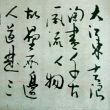 大江東去浪
淘盡千古
風流人物
故壘西邊
人道是三